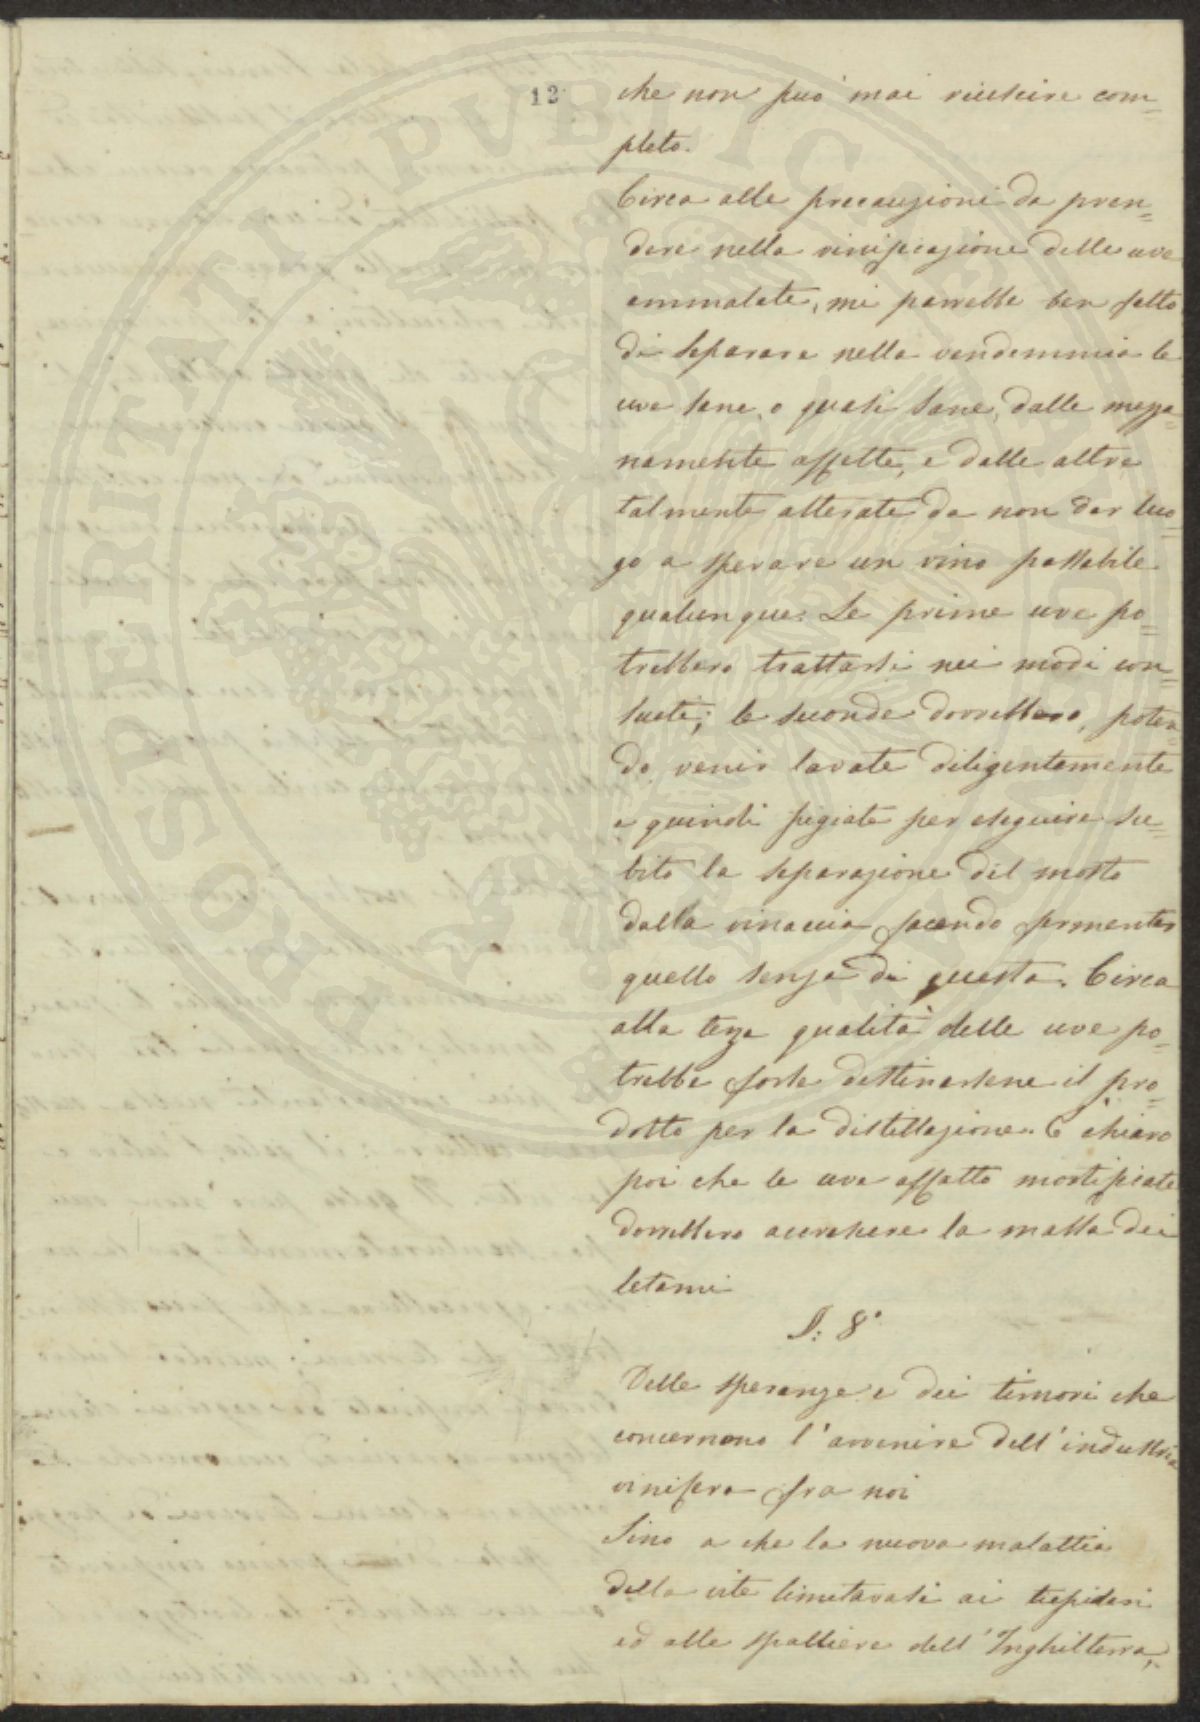 12
che non può mai riuscire com=
pleto.
Circa alle precauzioni da pren=
dere nella vinificazione delle uve
ammalate, mi parrebbe ben fatto
di separare nella vendemmia le
uve sane, o quasi sane, dalle mezza=
namente affette, e dalle altre
talmente alterate da non dar luo=
go a sperare un vino passabile
qualunque. Le prime uve po=
trebbero trattarsi nei modi con=
sueti; le seconde dovrebbero, poten=
do, venir lavate diligentemente
e quindi pigiate per eseguire su=
bito la separazione del mosto
dalla vinaccia facendo fermentar
quello senza di questa. Circa
alla terza qualità delle uve po=
trebbe forse destinarsene il pro=
dotto per la distillazione. È chiaro
poi che le uve affatto mortificate
dovrebbero accrescere la massa dei
letami
§: 8°
Delle speranze e dei timori che
concernono l'avvenire dell'industria
vinifera fra noi
Sino a che la nuova malattia
della vite limitavasi ai tepidari
ed alle spalliere dell'Inghilterra,
PROSPERITATI PVBLICAE